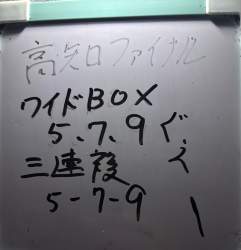 高知ファイナル
ワイドBOX
5、7、9
三連複
5-7-9